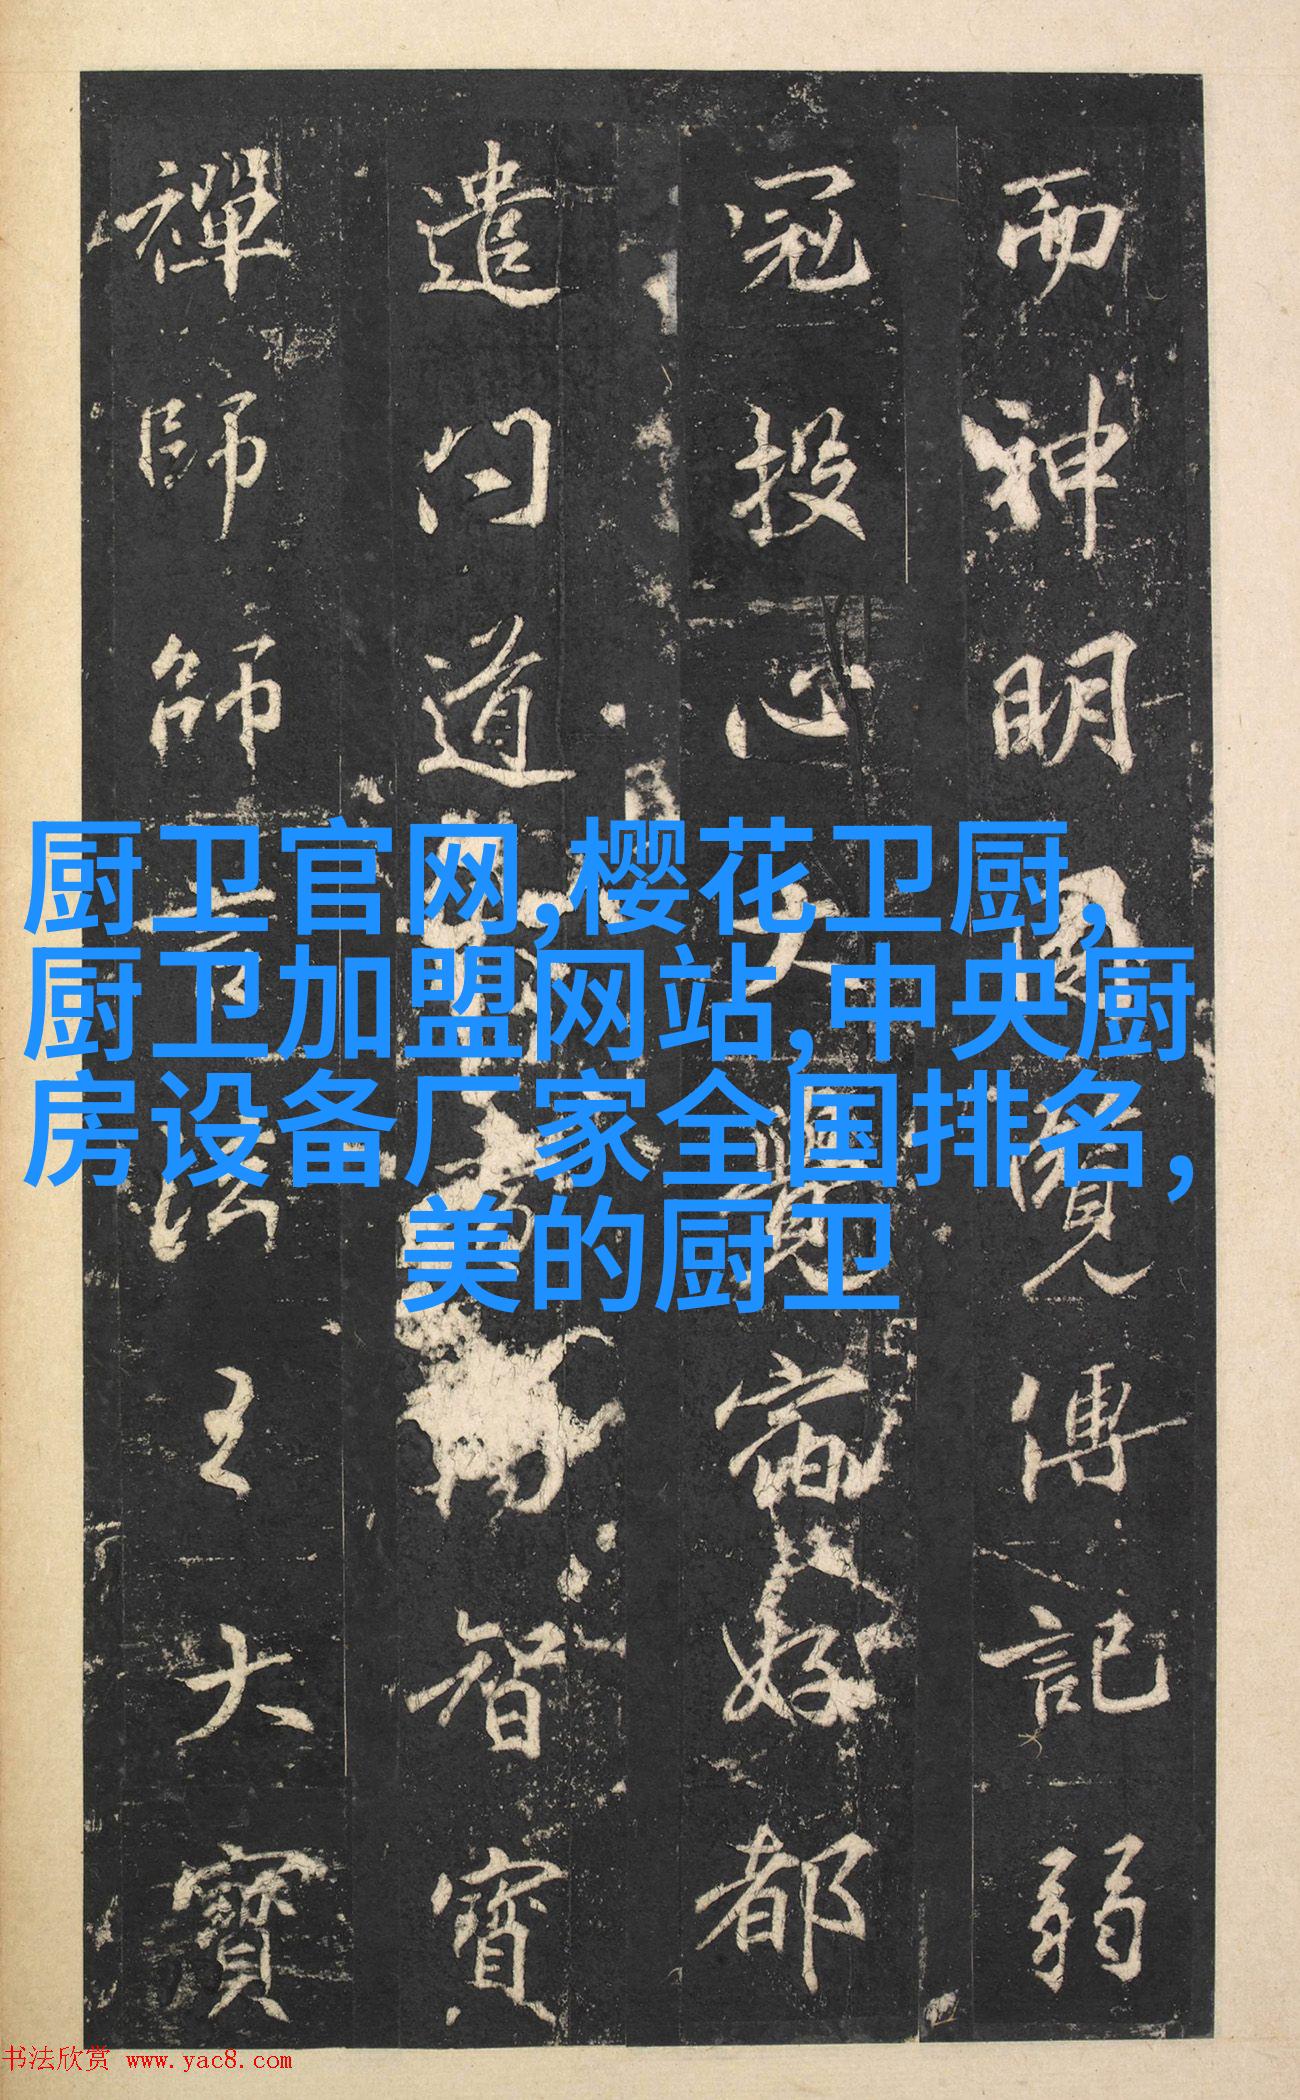 而神明因閱傳記弱
冠投心大覺宿好都
遣問道
智寶
禪師師言法王大寶
厨卫官网,樱花卫厨,
厨卫加盟网站,中央厨
房设备厂家全国排名,
美的厨卫
书法欣赏 www.yac8.com